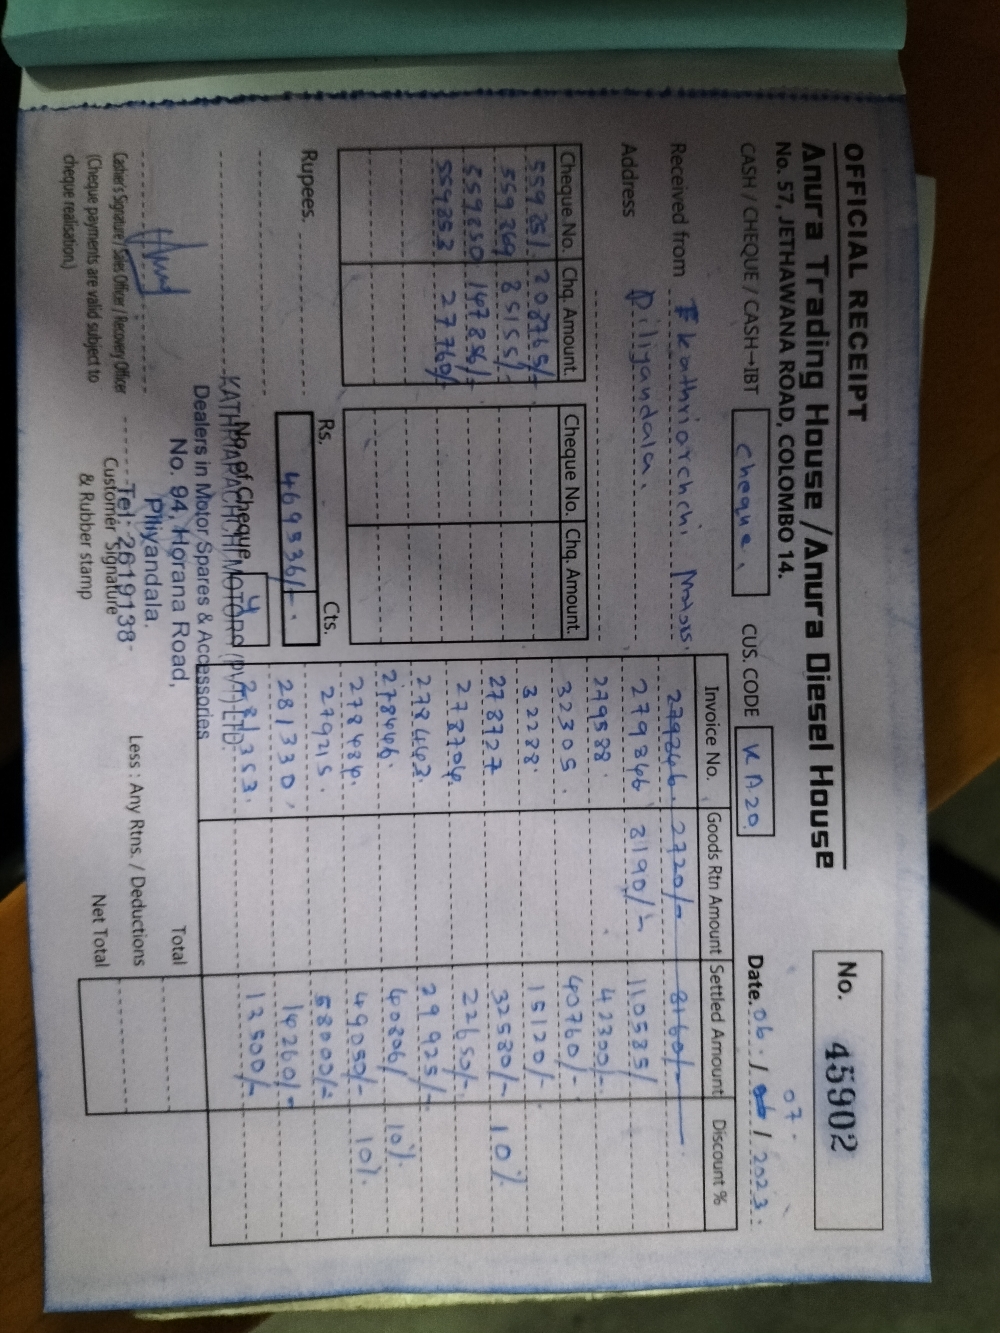 OFFICIAL RECEIPT
No. 45902
Anura Trading House / Anura Diesel House
No. 57, JETHAWANA ROAD, COLOMBO 14.
CASH / CHEQUE / CASH→IBT Cheque, CUS. CODE KA20. Date. 06. / 07 / 2023.
Received from
Address Piliyandala.
Cheque No. Chq. Amount. Cheque No. Chq. Amount.
559251. 208765/-
559269 85155/-
559250 147856/-
559252 27760/-
Rupees. Rs. Cts.
469536/-.
No. of Cheque 4
Invoice No. Goods Rtn Amount Settled Amount Discount %
279246. 2720/- 8160/-
279846 3190/- 110585/
279588. 42300/-
32305. 40760/-
32288. 15120/-
278727 32580/- 10%
278704. 22650/-
278443. 29925/-
278446. 40806/ 10%
278484. 49050/- 10%
279215. 58000/-
281330, 14260/-
281353. 13500/-
Total
Less : Any Rtns. / Deductions
Net Total
KATHRIARACHCHI MOTORS (PVT) LTD.
Dealers in Motor Spares & Accessories
No. 94, Horana Road,
Piliyandala.
Tel: 2619138
Casher's Signature / Sales Officer / Recovery Officer
(Cheque payments are valid subject to
cheque realisation.)
Customer Signature
& Rubber stamp